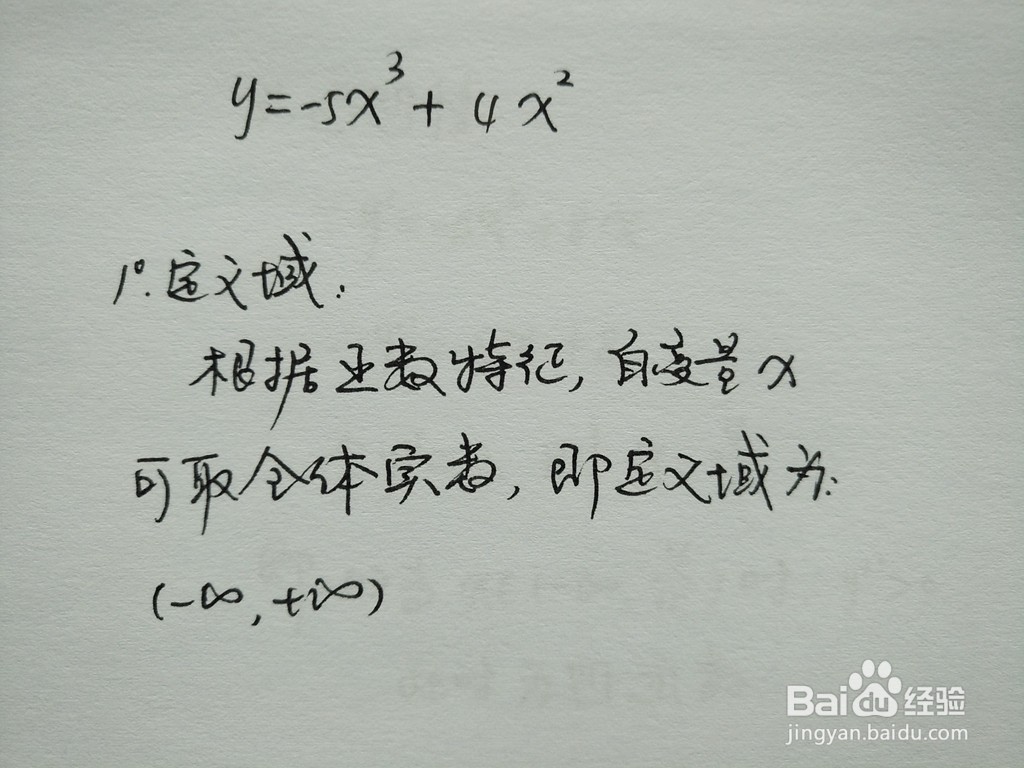 y=-5x³+4x²
1°.定义域:
根据函数特征,自变量x
可取全体实数,即定义域为:
(-∞,+∞)
Baidu经验
jingyan.baidu.com